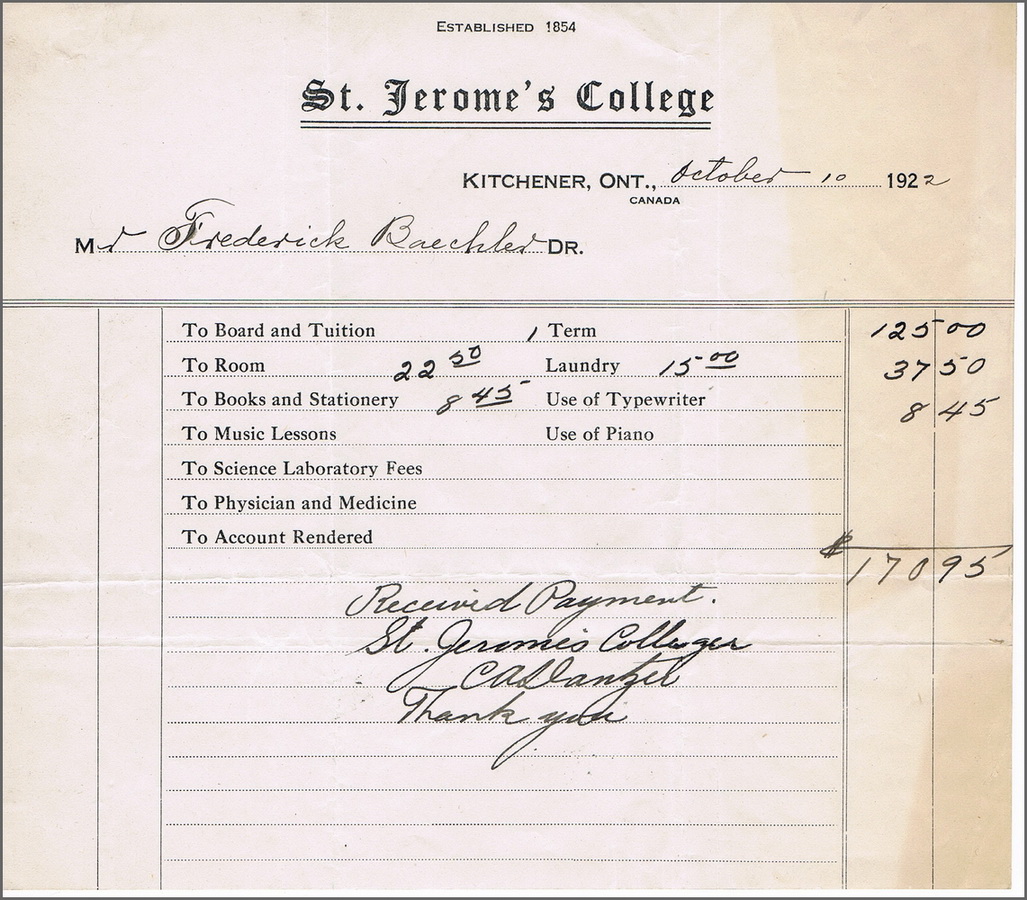 ESTABLISHED 1854
St. Jerome's College
KITCHENER, ONT., October 10 1922
CANADA
Mr Frederick Baechler DR.
To Board and Tuition 1 Term 125 00
To Room 22 50 Laundry 15 00 37 50
To Books and Stationery 8 45 Use of Typewriter 8 45
To Music Lessons Use of Piano
To Science Laboratory Fees
To Physician and Medicine
To Account Rendered
$ 170 95
Received Payment.
St. Jerome's College
Thank you